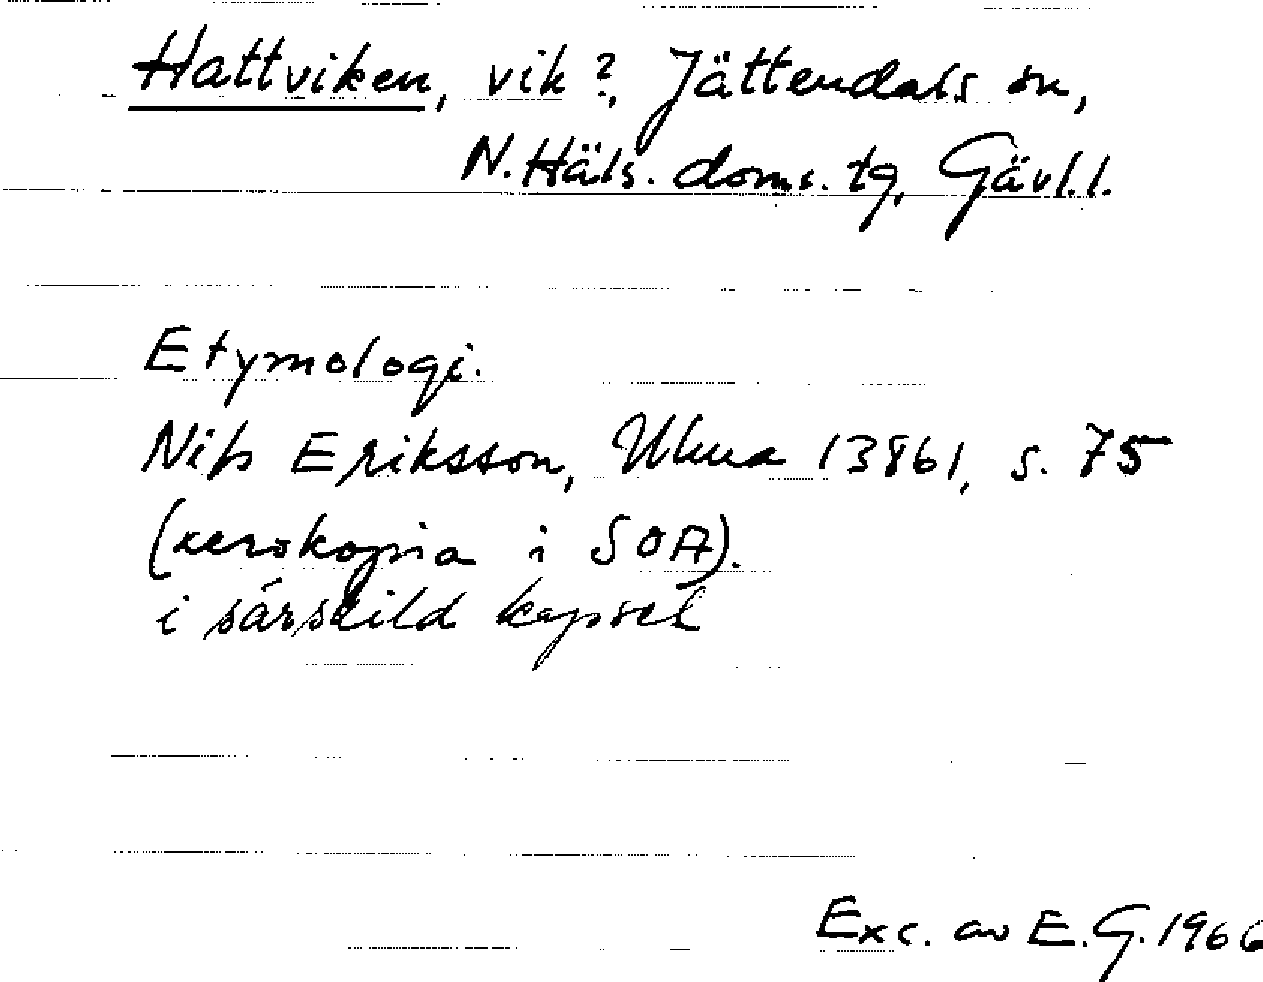 Hattviken, vik?, Jättendals sn,
N. Häls. doms. tg, Gävl. l.
Etymologi.
Nils Eriksson, Ulma 13861, s. 75
(xerokopia i SOA).
i särskild kapsel
Exc. av E. G. 1966